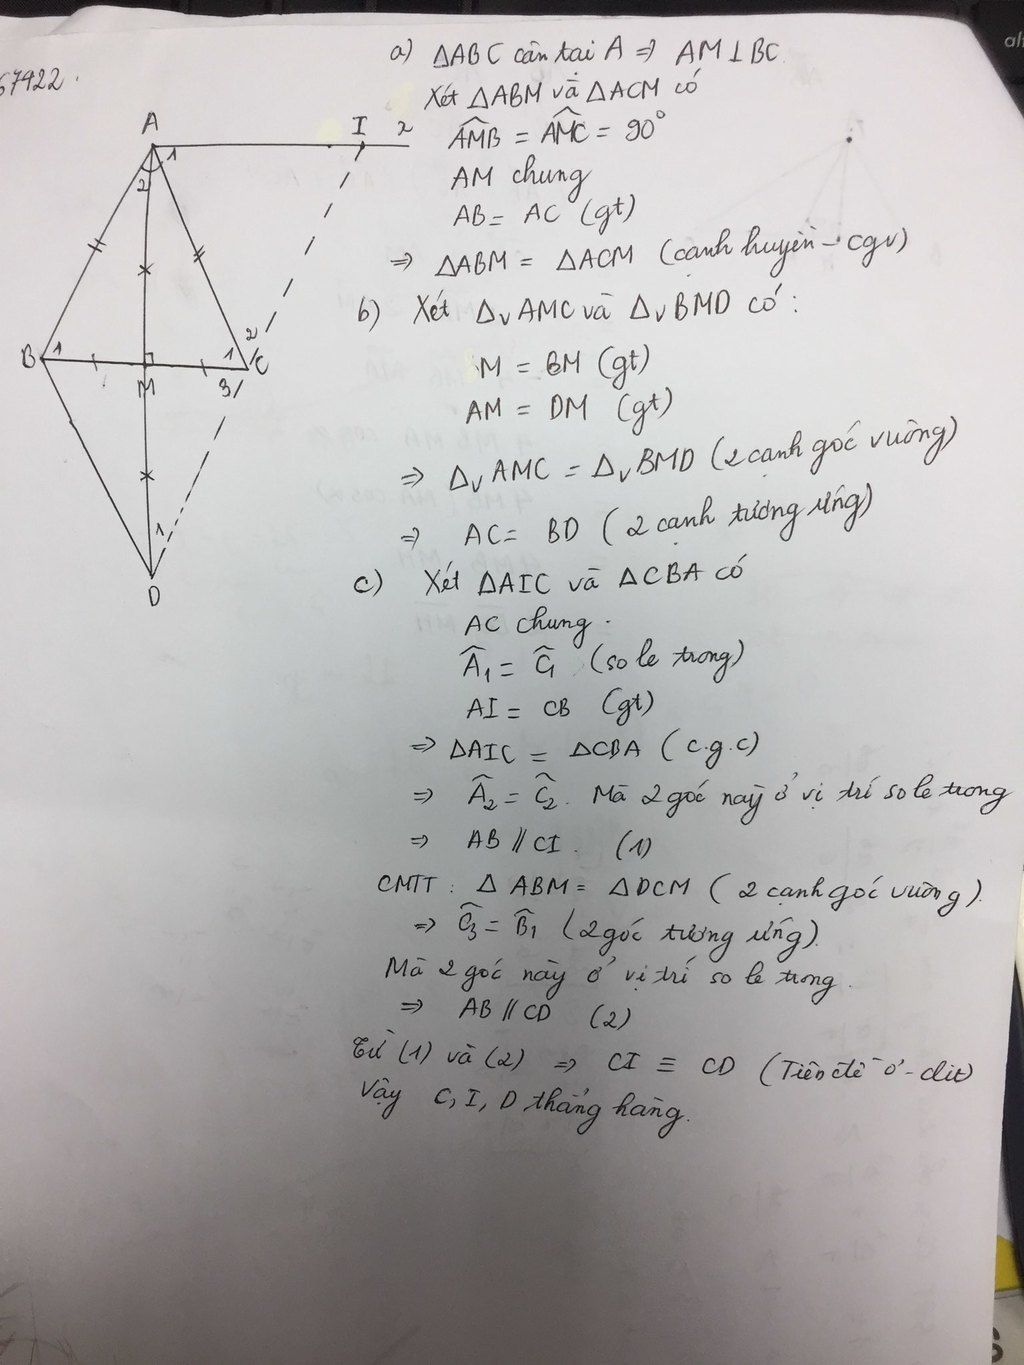 67922.
a) ΔABC cân tại A => AM ⊥ BC.
Xét ΔABM và ΔACM có
A I x
1
2
∠AMB = ∠AMC = 90°
AM chung
AB = AC (gt)
=> ΔABM = ΔACM (cạnh huyền - cgv)
b) Xét Δv AMC và Δv BMD có :
M = BM (gt)
AM = DM (gt)
B 1 M 1 2 3 C
=> Δv AMC = Δv BMD (2 cạnh góc vuông)
=> AC = BD (2 cạnh tương ứng)
1
D
c) Xét ΔAIC và ΔCBA có
AC chung.
Â1 = Ĉ1 (so le trong)
AI = CB (gt)
=> ΔAIC = ΔCBA (c.g.c)
=> Â2 = Ĉ2. Mà 2 góc này ở vị trí so le trong
=> AB // CI. (1)
CMTT : Δ ABM = ΔDCM (2 cạnh góc vuông).
=> Ĉ3 = B̂1 (2 góc tương ứng).
Mà 2 góc này ở vị trí so le trong.
=> AB // CD (2)
Từ (1) và (2) => CI ≡ CD (Tiên đề Ơ-clit)
Vậy C, I, D thẳng hàng.